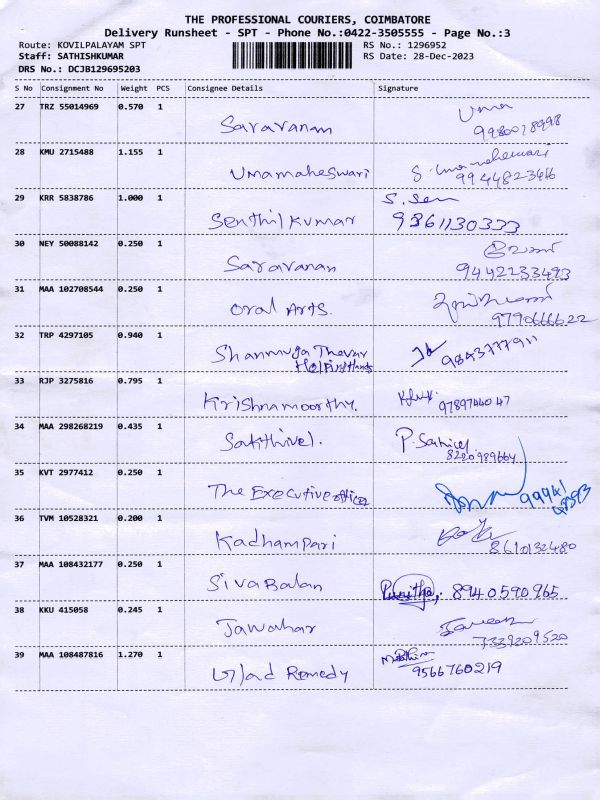 THE PROFESSIONAL COURIERS, COIMBATORE
Delivery Runsheet - SPT - Phone No.:0422-3505555 - Page No.:3
Route: KOVILPALAYAM SPT RS No.: 1296952
Staff: SATHISHKUMAR RS Date: 28-Dec-2023
DRS No.: DCJB129695203
S No Consignment No Weight PCS Consignee Details Signature
27 TRZ 55014969 0.570 1 Saravanan Uma
28 KMU 2715488 1.155 1 Umamaheswari
29 KRR 5838786 1.000 1 Senthil kumar S. Sen
9361130333
30 NEY 50088142 0.250 1 Saravanan
9442233493
31 MAA 102708544 0.250 1 Oral Arts.
9790666622
32 TRP 4297105 0.940 1 Shanmuga Thevar
9843777911
33 RJP 3275816 0.795 1 Krishnamoorthy.
34 MAA 298268219 0.435 1 Sakthivel.
8220989664
35 KVT 2977412 0.250 1 The Executive officer
36 TVM 10528321 0.200 1 Kadhampari
8610132480
37 MAA 108432177 0.250 1 Sivabalan Punitha, 8940590965
38 KKU 415058 0.245 1 Jawahar
7339209520
39 MAA 108487816 1.270 1 Remedy
9566760219